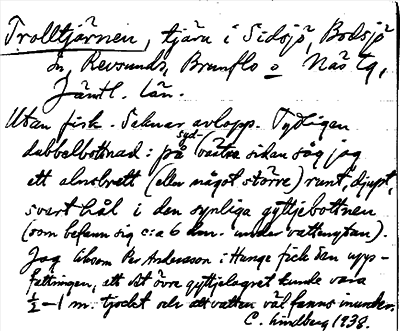 Trolltjärnen, tjärn i Sidsjö, Bodsjö
sn, Revsunds, Brunflo o Näs tg,
Jämtl. län.
Utan fisk. Saknar avlopp. Tydligen
dubbelbottnad: på syd-västra sidan såg jag
ett alnsbrett (eller något större) runt, djupt,
svart hål i den synliga gyttjebottnen
(som befann sig c:a 6 dm. under vattenytan).
Jag liksom Per Andersson i Hange fick den upp-
fattningen, att det övre gyttjelagret kunde vara
½-1 m. tjockt och att vatten väl fanns inunder.
C. Lindberg 1938.